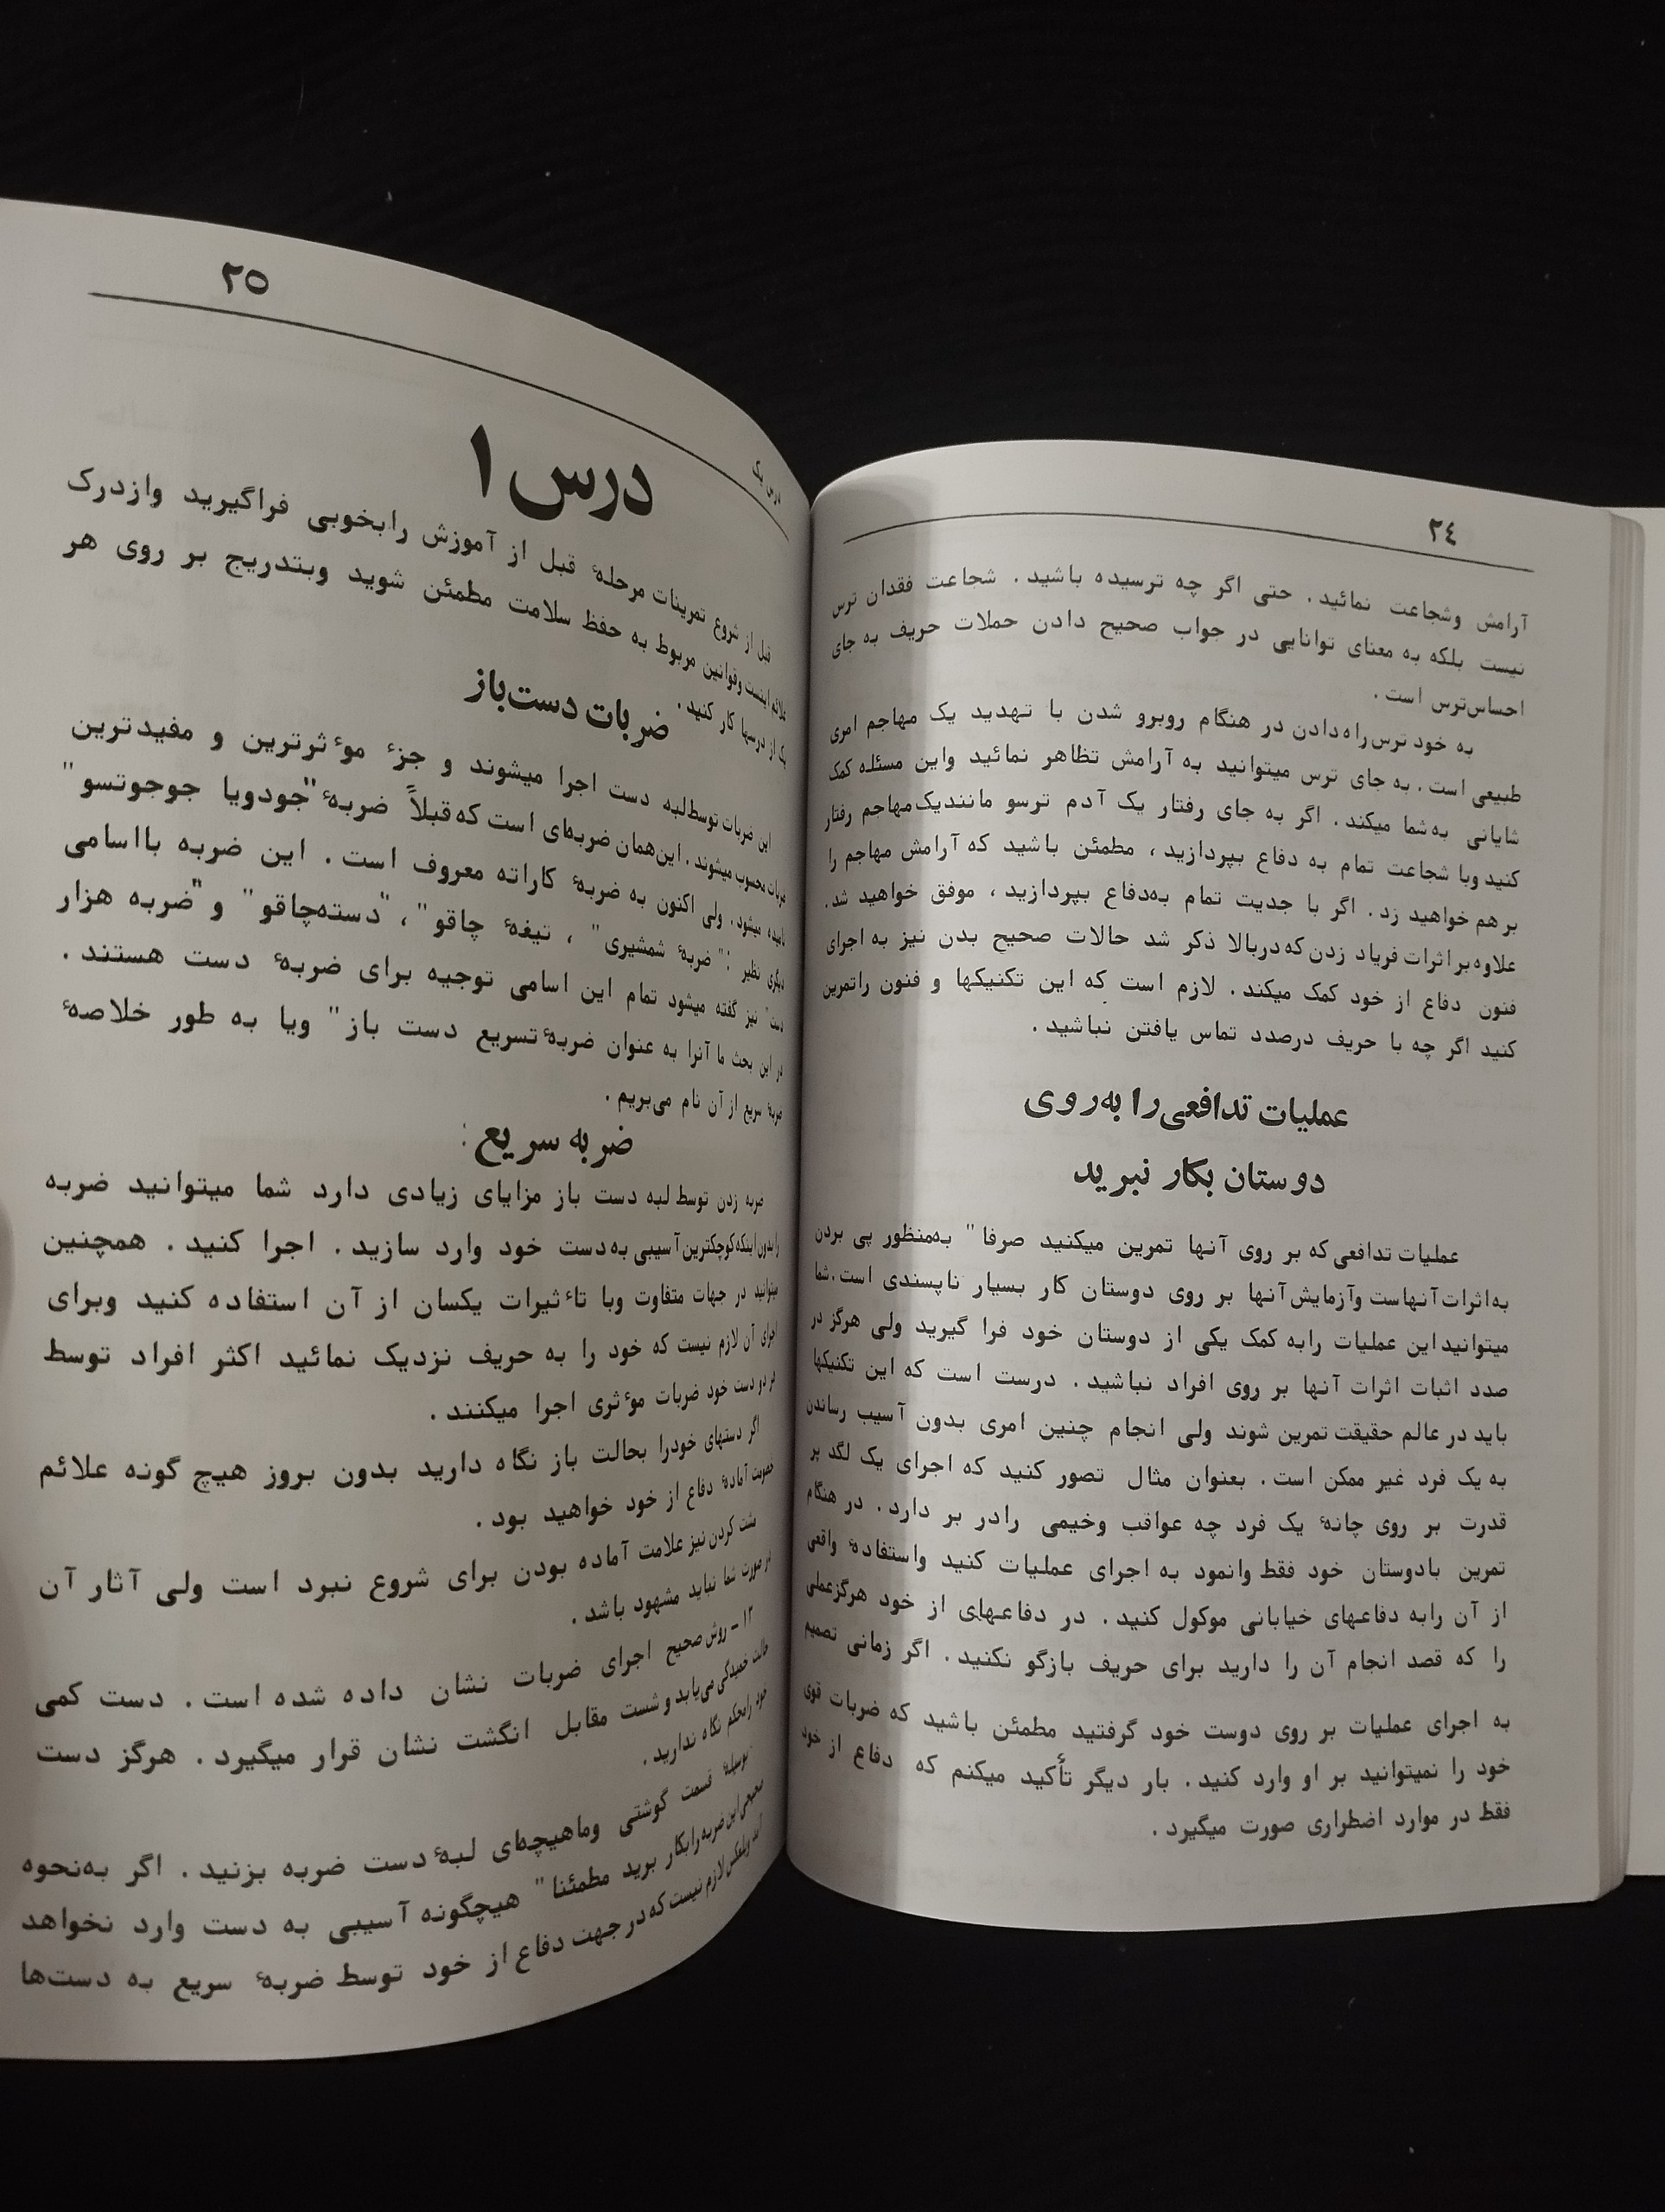 ٢٤
آرامش وشجاعت نمائید. حتی اگر چه ترسیده باشید. شجاعت فقدان ترس
نیست بلکه به معنای توانایی در جواب صحیح دادن حملات حریف به جای
احساس‌ترس است.
به خود ترس‌راه‌دادن در هنگام روبرو شدن با تهدید یک مهاجم امری
طبیعی است. به جای ترس میتوانید به آرامش تظاهر نمائید واین مسئله کمک
شایانی به‌شما میکند. اگر به جای رفتار یک آدم ترسو مانندیک‌مهاجم رفتار
کنید وبا شجاعت تمام به دفاع بپردازید، مطمئن باشید که آرامش مهاجم را
بر هم خواهید زد. اگر با جدیت تمام به‌دفاع بپردازید، موفق خواهید شد.
علاوه بر اثرات فریاد زدن که دربالا ذکر شد حالات صحیح بدن نیز به اجرای
فنون دفاع از خود کمک میکند. لازم است که این تکنیکها و فنون راتمرین
کنید اگر چه با حریف درصدد تماس یافتن نباشید.
عملیات تدافعی‌را به‌روی
دوستان بکار نبرید
عملیات تدافعی که بر روی آنها تمرین میکنید صرفا" به‌منظور پی بردن
به اثرات آنهاست وآزمایش آنها بر روی دوستان کار بسیار ناپسندی است.شما
میتوانید این عملیات رابه کمک یکی از دوستان خود فرا گیرید ولی هرگز در
صدد اثبات اثرات آنها بر روی افراد نباشید. درست است که این تکنیکها
باید در عالم حقیقت تمرین شوند ولی انجام چنین امری بدون آسیب رساندن
به یک فرد غیر ممکن است. بعنوان مثال تصور کنید که اجرای یک لگد پر
قدرت بر روی چانهٔ یک فرد چه عواقب وخیمی رادر بر دارد. در هنگام
تمرین بادوستان خود فقط وانمود به اجرای عملیات کنید واستفادهٔ واقعی
از آن رابه دفاعهای خیابانی موکول کنید. در دفاعهای از خود هرگزعملی
را که قصد انجام آن را دارید برای حریف بازگو نکنید. اگر زمانی تصمیم
به اجرای عملیات بر روی دوست خود گرفتید مطمئن باشید که ضربات قوی
خود را نمیتوانید بر او وارد کنید. بار دیگر تأکید میکنم که دفاع از خود
فقط در موارد اضطراری صورت میگیرد.
٢٥
درس یک
درس ١
قبل از شروع تمرینات مرحلهٔ قبل از آموزش رابخوبی فراگیرید وازدرک
علائم اینست وقوانین مربوط به حفظ سلامت مطمئن شوید وبتدریج بر روی هر
یک از درسها کار کنید.
ضربات دست‌باز
این ضربات توسط‌لبه دست اجرا میشوند و جزءٔ موٴثرترین و مفیدترین
ضربات محسوب میشوند. این‌همان ضربه‌ای است که قبلاً ضربهٔ "جودویا جوجوتسو"
نامیده میشود، ولی اکنون به ضربهٔ کاراته معروف است. این ضربه بااسامی
دیگری نظیر: "ضربهٔ شمشیری"، تیغهٔ چاقو"، "دسته‌چاقو" و "ضربه هزار
دست" نیز گفته میشود تمام این اسامی توجیه برای ضربهٔ دست هستند.
در این بحث ما آنرا به عنوان ضربهٔ تسریع دست باز" ویا به طور خلاصهٔ
ضربهٔ سریع از آن نام می‌بریم.
ضربه سریع:
ضربه زدن توسط لبه دست باز مزایای زیادی دارد شما میتوانید ضربه
رابدون اینکه کوچکترین آسیبی به دست خود وارد سازید. اجرا کنید. همچنین
میتوانید در جهات متفاوت وبا تاٴثیرات یکسان از آن استفاده کنید وبرای
اجرای آن لازم نیست که خود را به حریف نزدیک نمائید اکثر افراد توسط
هر دو دست خود ضربات موٴثری اجرا میکنند.
اگر دستهای خودرا بحالت باز نگاه دارید بدون بروز هیچ گونه علائم
خصومت آمادهٔ دفاع از خود خواهید بود.
مشت کردن نیز علامت آماده بودن برای شروع نبرد است ولی آثار آن
در صورت شما نباید مشهود باشد.
١٣ــ روش صحیح اجرای ضربات نشان داده شده است. دست کمی
حالت خمیدگی می‌یابد وشست مقابل انگشت نشان قرار میگیرد. هرگز دست
خود رامحکم نگاه ندارید.
بوسیلهٔ قسمت گوشتی وماهیچه‌ای لبهٔ دست ضربه بزنید. اگر به‌نحوه
صحیحی این ضربه رابکار برید مطمئنا" هیچگونه آسیبی به دست وارد نخواهد
لازم نیست که در جهت دفاع از خود توسط ضربهٔ سریع به دست‌ها